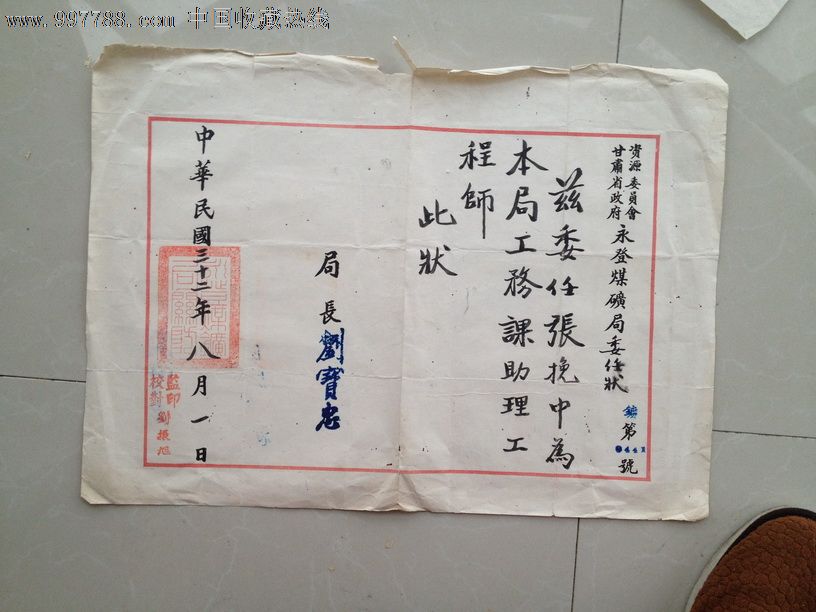 www.997788.com 中国收藏热线
資源委員會
甘肅省政府
永登煤礦局委任狀
鑛第0441號
茲委任張挽中為
本局工務課助理工
程師
此狀
局長劉寶忠
中華民國三十二年八月一日
監印
校對
劉振旭